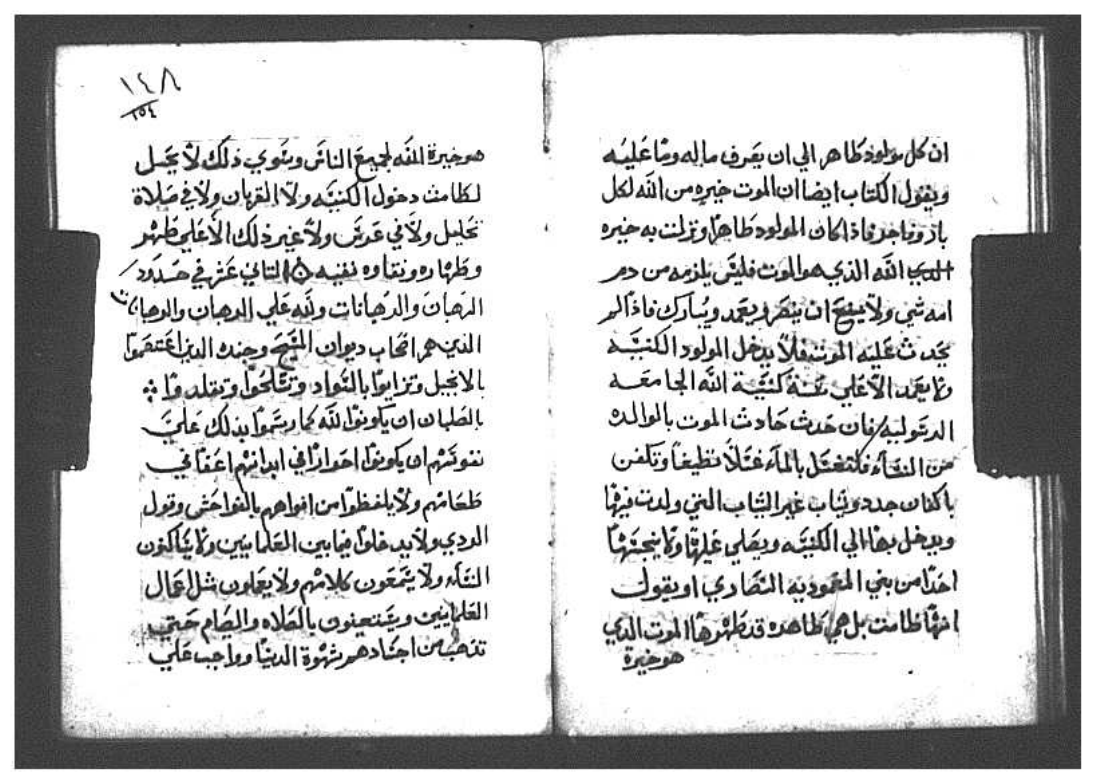 ان كل مولود طاهر الي ان يعرف ماله وما عليه
ويقول الكتاب ايضا ان الموت خيره من الله لكل
بار وفاجر فاذا كان المولود طاهرا ونزلت به خيره
الله الذي هو الموت فليس يلزمه من دم
امه شي ولا ان ويعمد ويبارك فاذا لم
يحدث عليه الموت فلا يدخل المولود الكنيسه
ولا يعمد الا علي سنة كنيسة الله الجامعه
الرسوليه فان حدث حادث الموت بالوالده
من النسآء فلتغتسل بالمآء غسلا نظيفا وتكفن
باكفان جدد وثياب غير الثياب التي ولدت فيها
ويدخل بها الي الكنيسه ويصلي عليها ولا ينجسها
احدا من بني المعموديه النصاري او يقول
انها طامث بل هي طاهره قد طهرها الموت الذي
هو خيرة
١٤٨
١٥٤
هو خيرة الله لجميع الناس وسوي ذلك لا يحل
لطامث دخول الكنيسه ولا القربان ولا في صلاة
تحليل ولا في عرس ولا غير ذلك الا علي طهر
وطهاره ونقاوه نقيه الثاني عشر في حدود
الرهبان والرهبانات ولله علي الرهبان والرهبانات
الذين هم اصحاب ديوان المسيح وجنده الذين اعتصموا
بالانجيل وتزايوا بالسواد وتسلحوا وتقلدوا
بالصلبان ان يكونوا لله كما رسموا بذلك علي
نفوسهم ان يكونوا احرارا في ابدانهم اعفا في
طعامهم ولا يلفظوا من افواههم بالفواحش وقول
الردي ولا يدخلوا فيما بين العلمانيين ولا يساكنون
النسآء ولا يسمعون كلامهم ولا يعملون مثل اعمال
العلمانيين ويستعينون بالصلاه والصيام حتي
تذهب من اجسادهم شهوة الدنيا وواجب علي